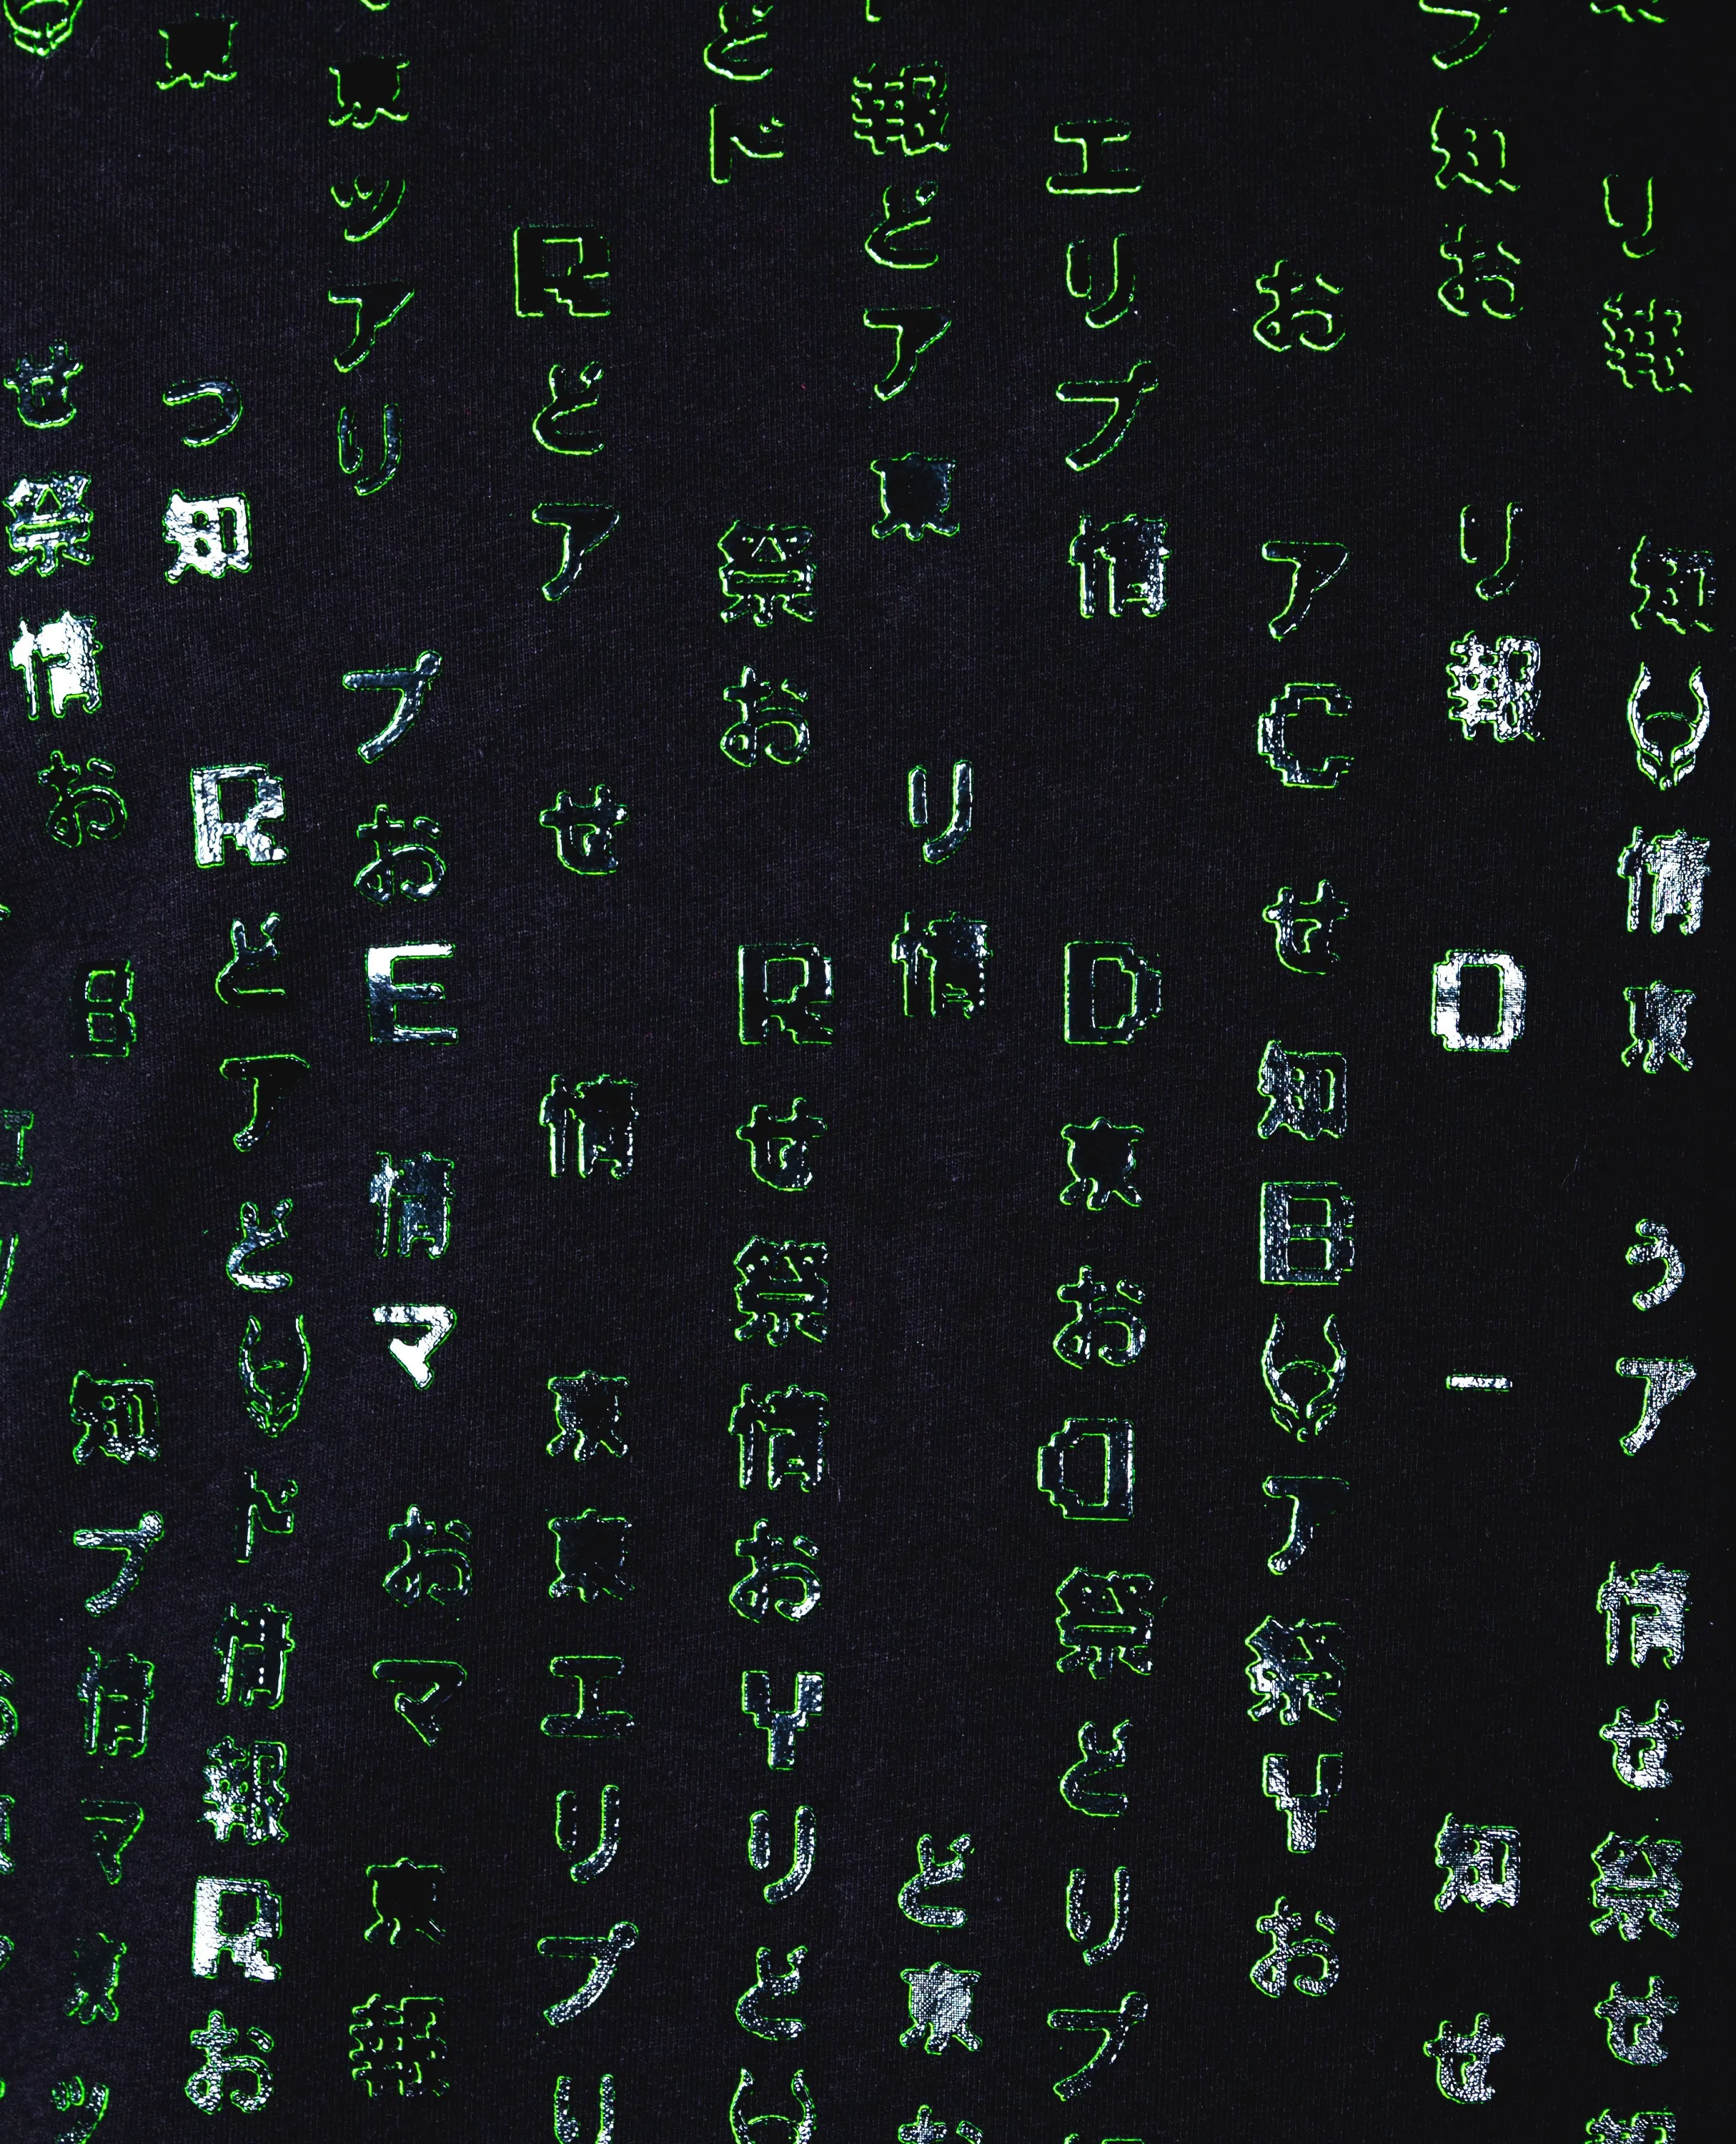 リ報知情東うア情せ祭せ報
知おリ報Oー知せ
おアCせ知Bア祭Yお
エリプ情D東お祭どリプ
報どア東リ情ど東
どド祭おRせ祭情おYリど
Rどアせ情東東エリプリ
東ッアリプおE情マおマ東報
東つ知Rどアどド情報Rお
せ祭情おB知プ情マ東ッ